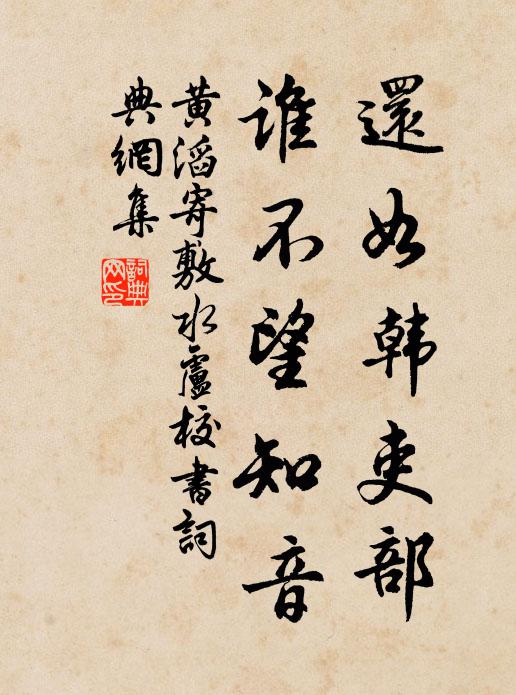 還如韓吏部
誰不望知音
黃滔寄敷水盧校書詞
典網集
詞典
网印